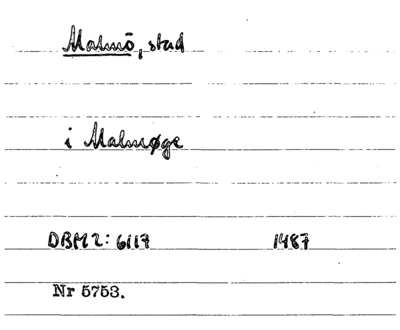 Malmö, stad
i Malmøge
DBM 2: 6117 1487
Nr 5753.